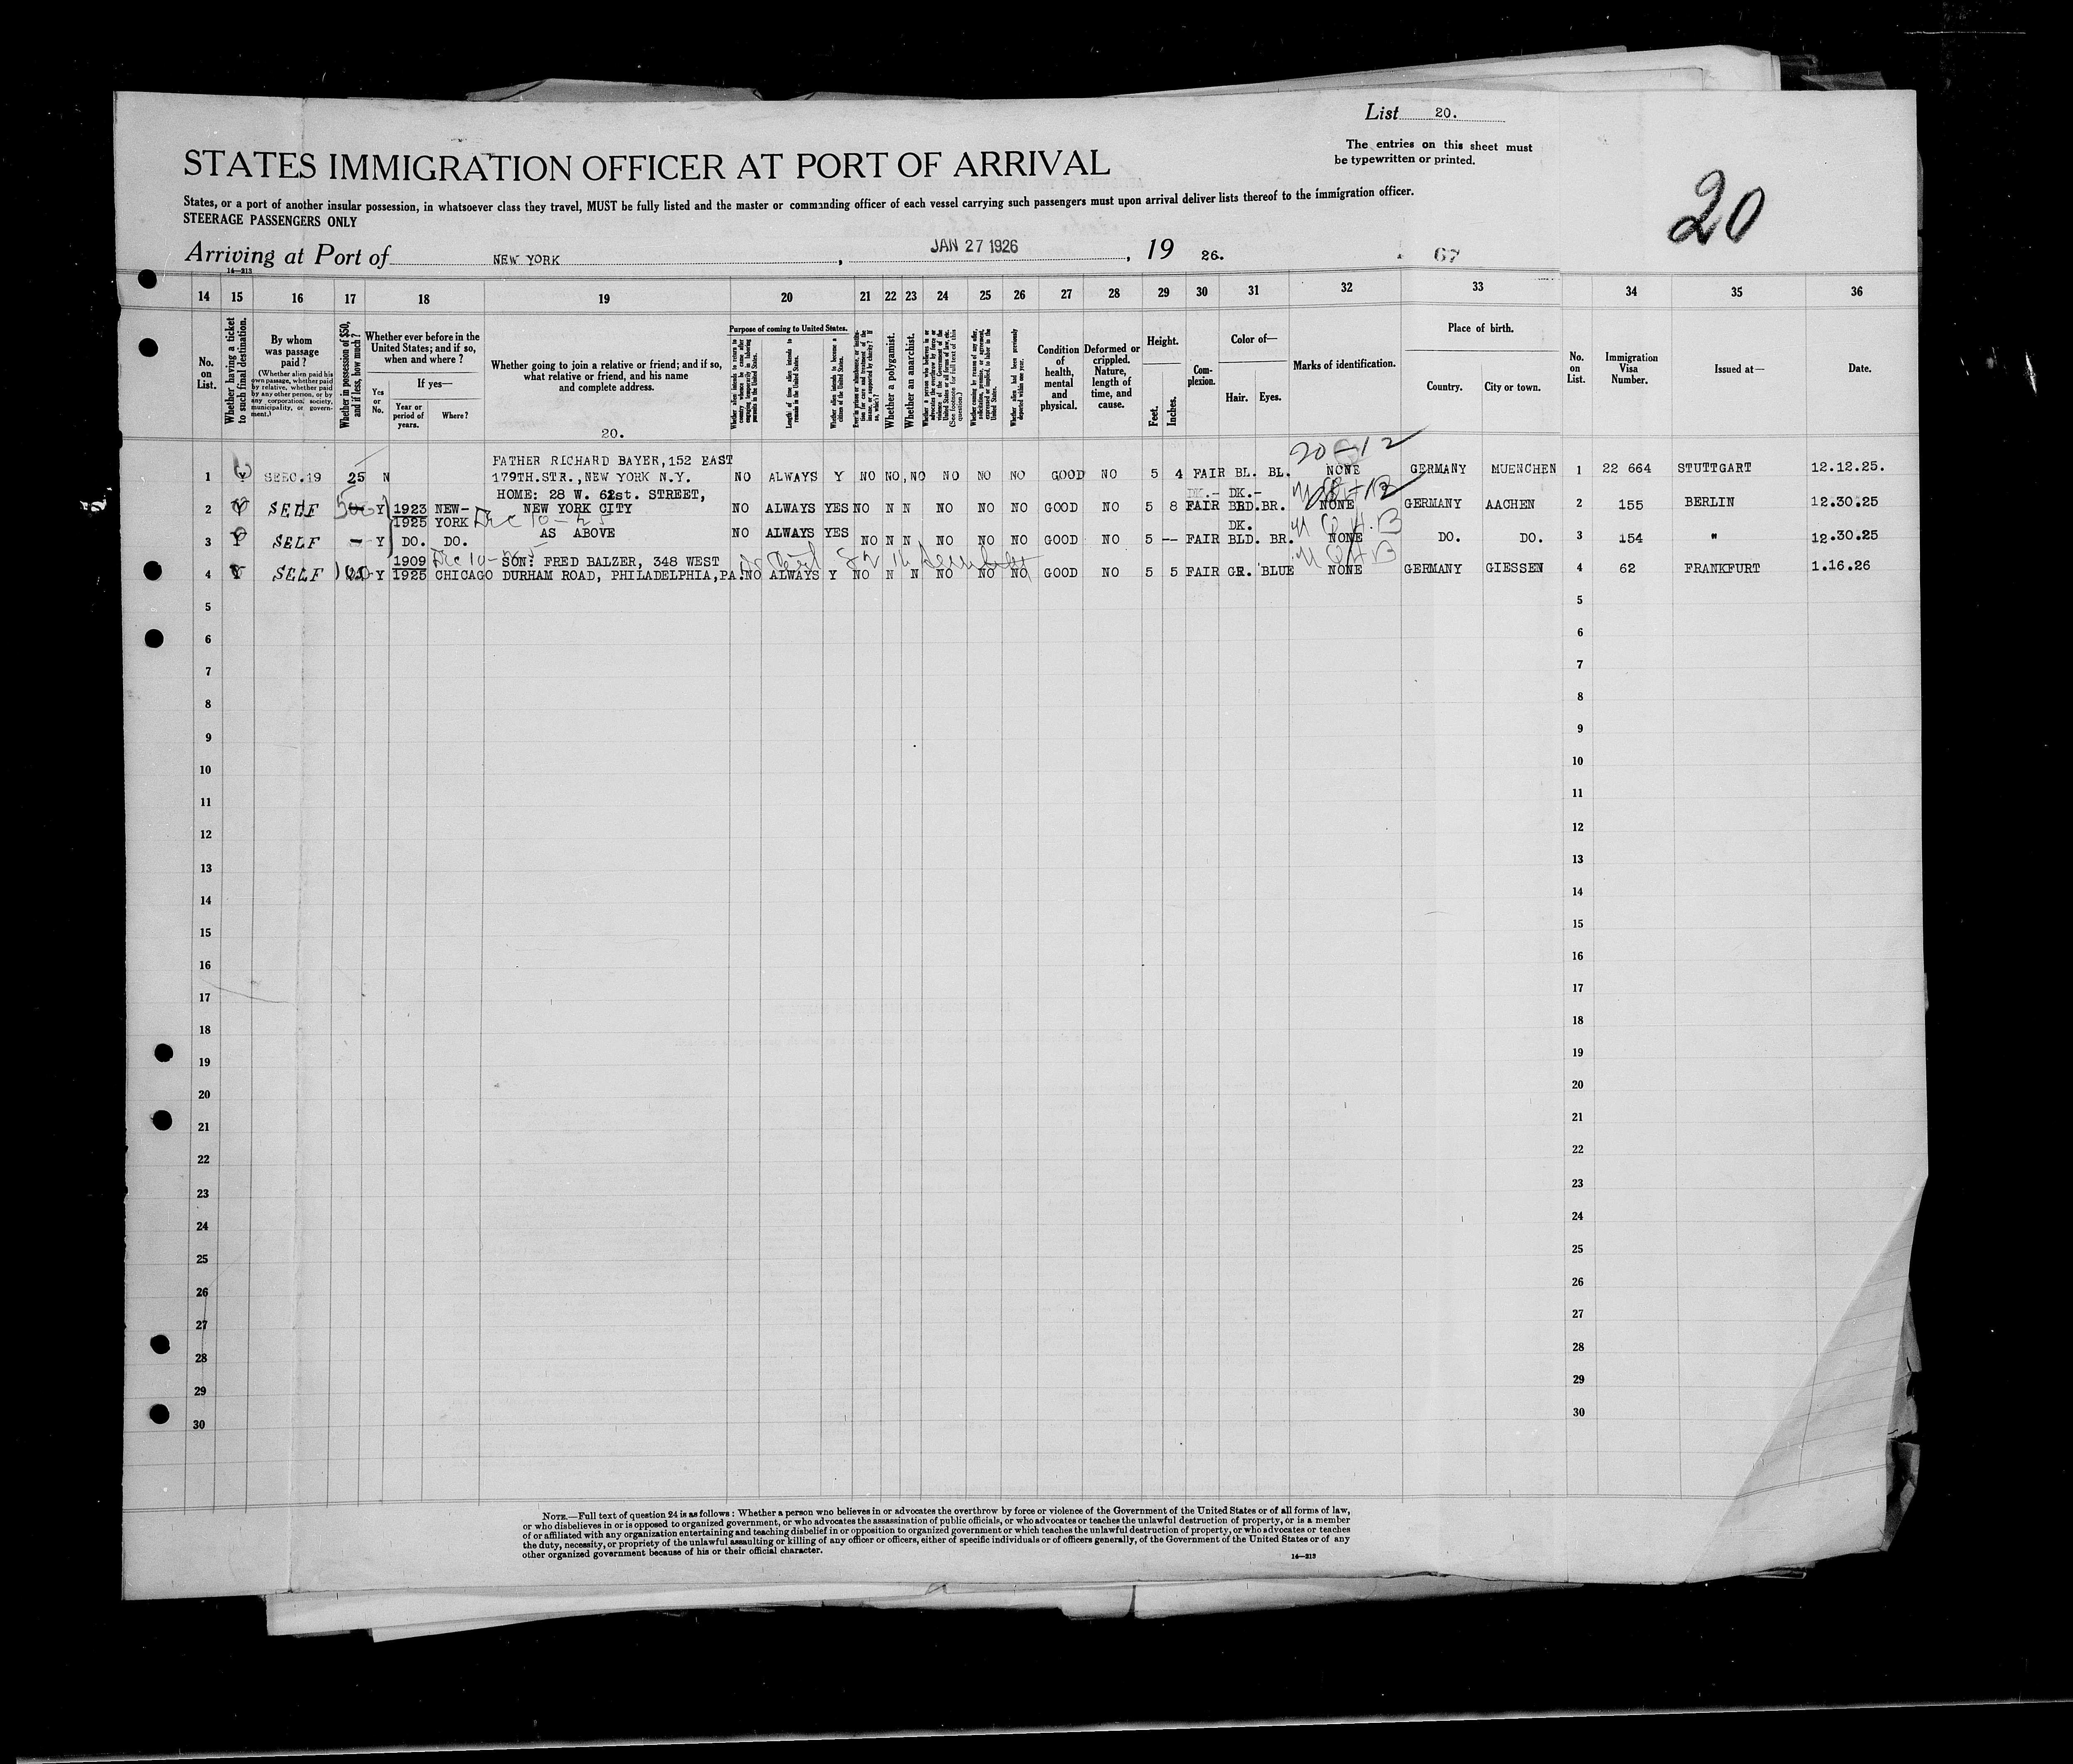 List 20.
The entries on this sheet must
be typewritten or printed.
STATES IMMIGRATION OFFICER AT PORT OF ARRIVAL
20
States, or a port of another insular possession, in whatsoever class they travel, MUST be fully listed and the master or commanding officer of each vessel carrying such passengers must upon arrival deliver lists thereof to the immigration officer.
STEERAGE PASSENGERS ONLY
Arriving at Port of NEW YORK, JAN 27 1926, 19 26. 67
14—213
14 15 16 17 18 19 20 21 22 23 24 25 26 27 28 29 30 31 32 33 34 35 36
No. on List.
Whether having a ticket to such final destination.
By whom was passage paid?
(Whether alien paid his own passage, whether paid by relative, whether paid by any other person, or by any corporation, society, municipality, or government.)
Whether in possession of $50, and if less, how much?
Whether ever before in the United States; and if so, when and where?
Yes or No.
If yes—
Year or period of years.
Where?
Whether going to join a relative or friend; and if so, what relative or friend, and his name and complete address.
20.
Purpose of coming to United States.
Whether alien intends to return to country whence he came after engaging temporarily in laboring pursuits in the United States.
Length of time alien intends to remain in the United States.
Whether alien intends to become a citizen of the United States.
Whether a polygamist.
Whether an anarchist.
Condition of health, mental and physical.
Deformed or crippled. Nature, length of time, and cause.
Height.
Feet.
Inches.
Complexion.
Color of—
Hair. Eyes.
Marks of identification.
Place of birth.
Country. City or town.
No. on List.
Immigration Visa Number.
Issued at—
Date.
20-12
FATHER RICHARD BAYER, 152 EAST
1 Y 25 N 179TH.STR., NEW YORK N.Y. NO ALWAYS Y NO NO NO NO NO NO GOOD NO 5 4 FAIR BL. BL. NONE GERMANY MUENCHEN 1 22 664 STUTTGART 12.12.25.
HOME: 28 W. 61st. STREET, DK.- DK.-
2 Y SELF Y 1923 NEW- NEW YORK CITY NO ALWAYS YES NO N N NO NO NO GOOD NO 5 8 FAIR BLD. BR. NONE GERMANY AACHEN 2 155 BERLIN 12.30.25
1925 YORK Dec 10-25 DK.
3 Y SELF - Y DO. DO. AS ABOVE NO ALWAYS YES NO N N NO NO NO GOOD NO 5 -- FAIR BLD. BR. NONE DO. DO. 3 154 " 12.30.25
1909 SON: FRED BALZER, 348 WEST
4 Y SELF 100 Y 1925 CHICAGO DURHAM ROAD, PHILADELPHIA, PA. NO ALWAYS Y NO N N NO NO NO GOOD NO 5 5 FAIR GR. BLUE NONE GERMANY GIESSEN 4 62 FRANKFURT 1.16.26
5 5
6 6
7 7
8 8
9 9
10 10
11 11
12 12
13 13
14 14
15 15
16 16
17 17
18 18
19 19
20 20
21 21
22 22
23 23
24 24
25 25
26 26
27 27
28 28
29 29
30 30
NOTE.—Full text of question 24 is as follows: Whether a person who believes in or advocates the overthrow by force or violence of the Government of the United States or of all forms of law,
or who disbelieves in or is opposed to organized government, or who advocates the assassination of public officials, or who advocates or teaches the unlawful destruction of property, or is a member
of or affiliated with any organization entertaining and teaching disbelief in or opposition to organized government or which teaches the unlawful destruction of property, or who advocates or teaches
the duty, necessity, or propriety of the unlawful assaulting or killing of any officer or officers, either of specific individuals or of officers generally, of the Government of the United States or of any
other organized government because of his or their official character.
14—213